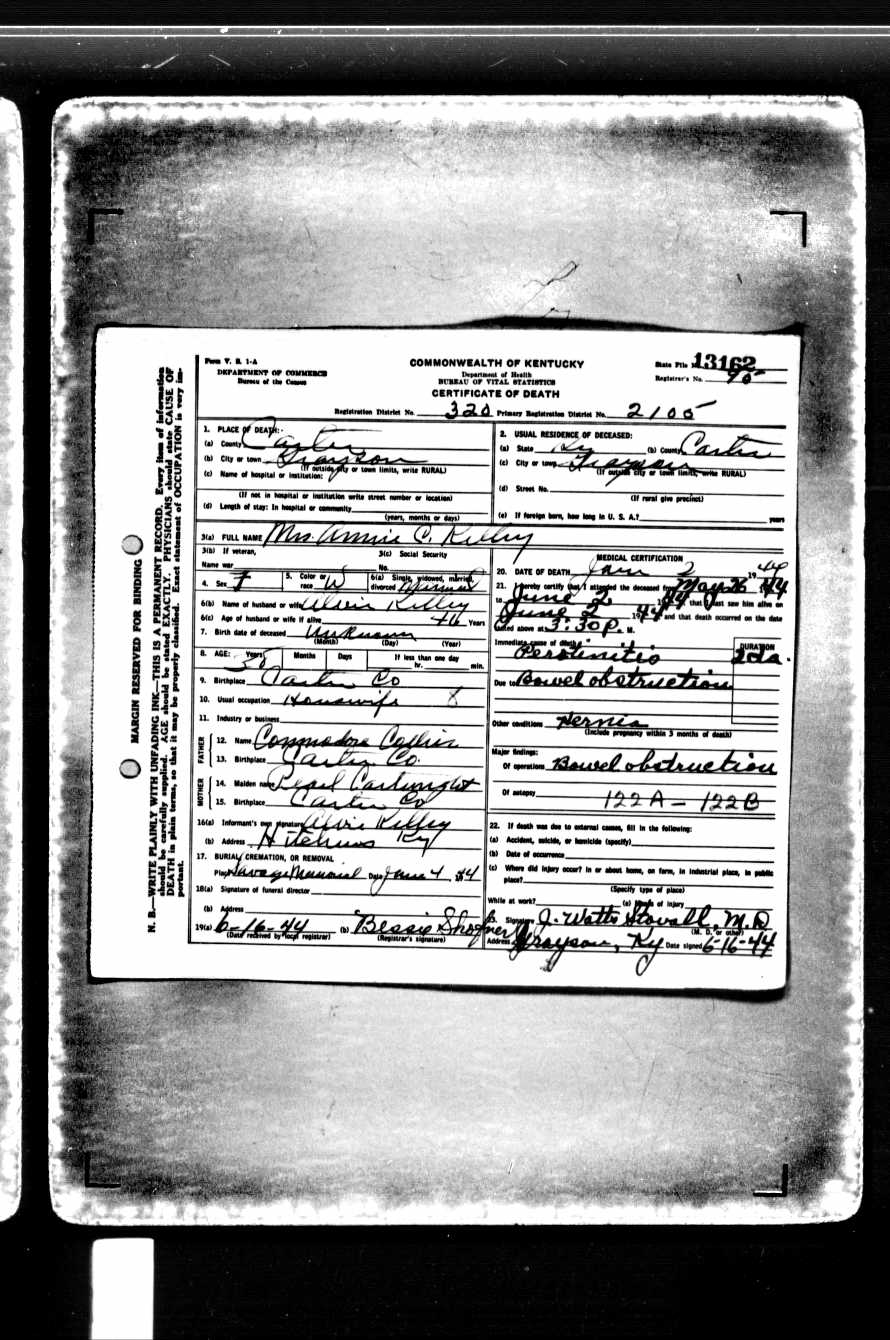 Form V. S. 1-A
DEPARTMENT OF COMMERCE
Bureau of the Census
COMMONWEALTH OF KENTUCKY
Department of Health
BUREAU OF VITAL STATISTICS
CERTIFICATE OF DEATH
State File No. 13162
Registrar's No. 95
Registration District No. 320 Primary Registration District No. 2105
MARGIN RESERVED FOR BINDING
N. B.—WRITE PLAINLY WITH UNFADING INK—THIS IS A PERMANENT RECORD. Every item of information
should be carefully supplied. AGE should be stated EXACTLY. PHYSICIANS should state CAUSE OF
DEATH in plain terms, so that it may be properly classified. Exact statement of OCCUPATION is very im-
portant.
1. PLACE OF DEATH:
(a) County Carter
(b) City or town Grayson
(If outside city or town limits, write RURAL)
(c) Name of hospital or institution:
(If not in hospital or institution write street number or location)
(d) Length of stay: In hospital or community
(years, months or days)
2. USUAL RESIDENCE OF DECEASED:
(a) State Ky (b) County Carter
(c) City or town Grayson
(If outside city or town limits, write RURAL)
(d) Street No.
(If rural give precinct)
(e) If foreign born, how long in U. S. A.? years
3(a) FULL NAME Mrs Annie C. Kelley
3(b) If veteran, 3(c) Social Security
Name war No.
4. Sex F 5. Color or race W 6(a) Single, widowed, married, divorced Married
6(b) Name of husband or wife Alvie Kelley
6(c) Age of husband or wife if alive 46 Years
7. Birth date of deceased Unknown
(Month) (Day) (Year)
8. AGE: Years Months Days If less than one day
38 hr. min.
9. Birthplace Carter Co
10. Usual occupation Housewife 8
11. Industry or business
FATHER
12. Name Commodore Collier
13. Birthplace Carter Co.
MOTHER
14. Maiden name Pearl Cartwright
15. Birthplace Carter Co
16(a) Informant's own signature Alvie Kelley
(b) Address Hitchins Ky
17. BURIAL, CREMATION, OR REMOVAL
Place Savage Memorial Date June 4 1944
18(a) Signature of funeral director
(b) Address
19(a) 6-16-44 (b) Bessie Shofner
(Date received by local registrar) (Registrar's signature)
MEDICAL CERTIFICATION
20. DATE OF DEATH June 2 1944
21. I hereby certify that I attended the deceased from May 26 1944
to June 2 1944 that I last saw him alive on
June 2 1944 and that death occurred on the date
stated above at 3:30 P. M.
Immediate cause of death DURATION
Peritinitis 2 da.
Due to Bowel obstruction
Other conditions Hernia
(Include pregnancy within 3 months of death)
Major findings:
Of operations Bowel obstruction
Of autopsy 122A - 122B
22. If death was due to external causes, fill in the following:
(a) Accident, suicide, or homicide (specify)
(b) Date of occurrence
(c) Where did injury occur? In or about home, on farm, in industrial place, in public
place?
(Specify type of place)
While at work? (e) Means of injury
23. Signature J. Watts Stovall, M.D
(M. D. or other)
Address Grayson, Ky Date signed 6-16-44